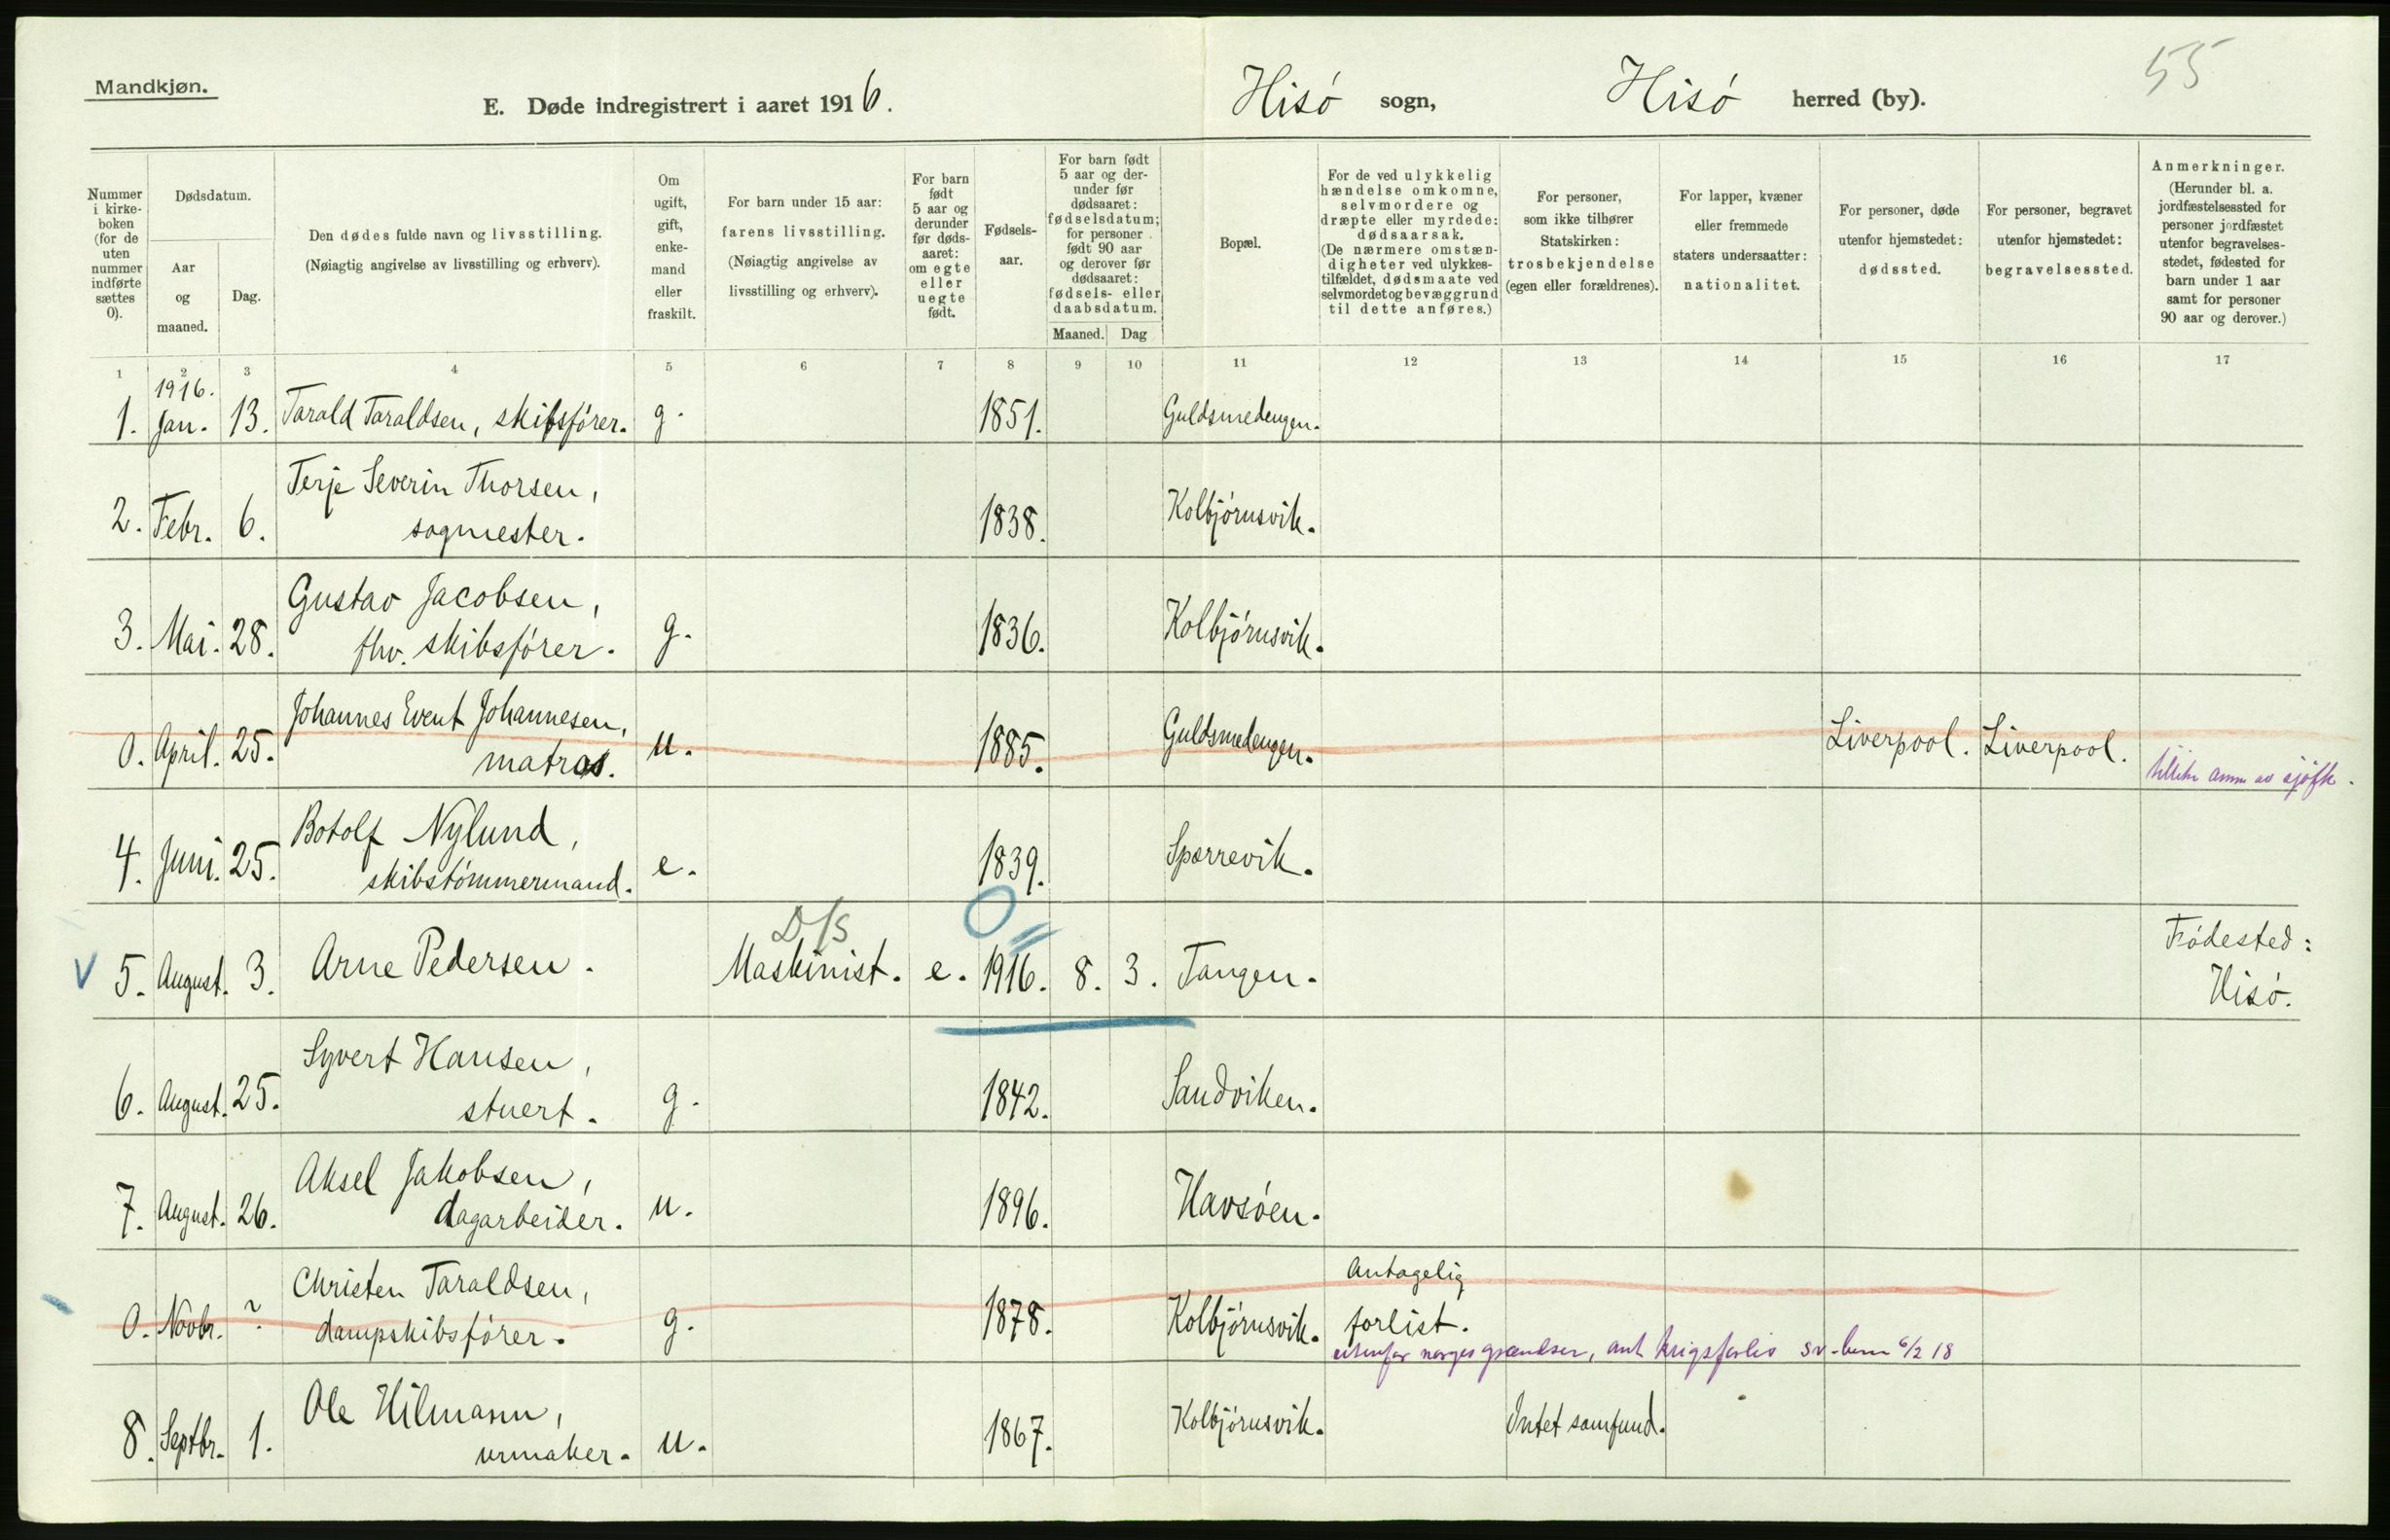 Mandkjøn.
E. Døde indregistrert i aaret 1916. Hisó sogn, Hisó herred (by). 55
Nummer i kirke-boken (for de uten nummer indførte sættes 0).
Dødsdatum.
Aar og maaned.
Dag.
Den dødes fulde navn og livsstilling.
(Nøiagtig angivelse av livsstilling og erhverv).
Om ugift, gift, enke-mand eller fraskilt.
For barn under 15 aar: farens livsstilling.
(Nøiagtig angivelse av livsstilling og erhverv).
For barn født 5 aar og derunder før døds-aaret: om egte eller uegte født.
Fødsels-aar.
For barn født 5 aar og der-under før dødsaaret: fødselsdatum; for personer født 90 aar og derover før dødsaaret: fødsels- eller daabsdatum.
Maaned. Dag
Bopæl.
For de ved ulykkelig hændelse omkomne, selvmordere og dræpte eller myrdede: dødsaarsak.
(De nærmere omstæn-digheter ved ulykkes-tilfældet, dødsmaate ved selvmordet og bevæggrund til dette anføres.)
For personer, som ikke tilhører Statskirken: trosbekjendelse (egen eller forældrenes).
For lapper, kvæner eller fremmede staters undersaatter: nationalitet.
For personer, døde utenfor hjemstedet: dødssted.
For personer, begravet utenfor hjemstedet: begravelsessted.
Anmerkninger.
(Herunder bl. a. jordfæstelsessted for personer jordfæstet utenfor begravelses-stedet, fødested for barn under 1 aar samt for personer 90 aar og derover.)
1 2 3 4 5 6 7 8 9 10 11 12 13 14 15 16 17
1916.
1. Jan. 13. Tarald Taraldsen, skibsfórer. g. 1851. Guldsmedengen.
Terje Severin Thorsen,
2. Febr. 6. sagmester. 1838. Kolbjórnsvik.
Gustav Jacobsen,
3. Mai. 28. fhv. skibsfórer. g. 1836. Kolbjórnsvik.
Johannes Event Johannesen,
0. April. 25. matros. u. 1885. Guldsmedengen. Liverpool. Liverpool. anm av sjöfk.
Botolf Nylund,
4. Juni. 25. skibstómmermand. e. 1839. Sparrevik.
D/S 0
V 5. August. 3. Arne Pedersen. Maskinist. e. 1916. 8. 3. Tangen. Fódested: Hisó.
Syvert Hansen,
6. August. 25. stuert. g. 1842. Sandviken.
Aksel Jakobsen,
7. August. 26. dagarbeider. u. 1896. Havsóen.
Christen Taraldsen, Antagelig
0. Novbr. ? dampskibsfórer. g. 1878. Kolbjórnsvik. forlist.
utenfor norges grændser, ant krigsforlis sv. 6/2 18
Ole Hilmann,
8. Septbr. 1. urmaker. u. 1867. Kolbjórnsvik. Intet samfund.